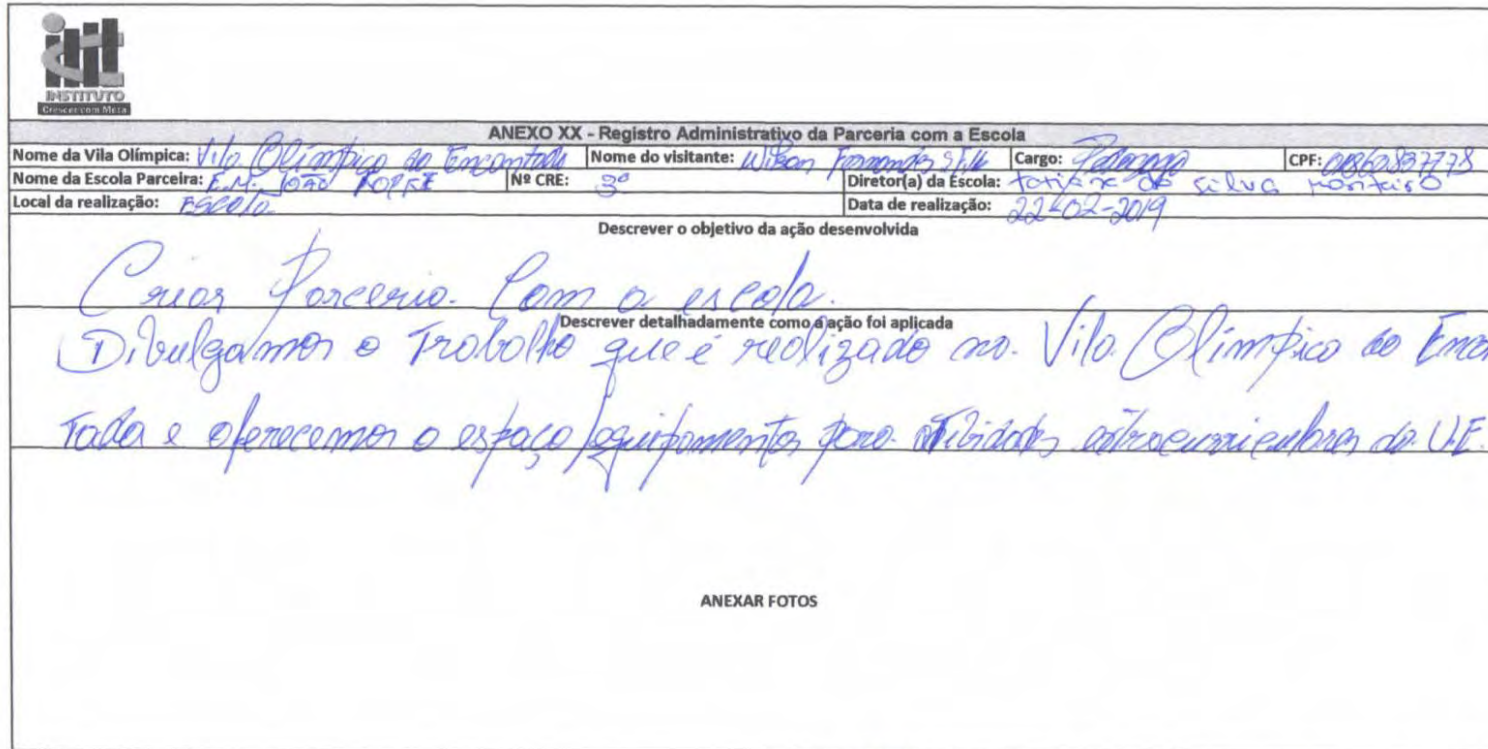 INSTITUTO
Crescer com Meta
ANEXO XX - Registro Administrativo da Parceria com a Escola
Nome da Vila Olímpica: Vila Olímpica do Encantado Nome do visitante: Wilson Fernandes Cargo: Pedagogo CPF:
Nome da Escola Parceira: E.M. JOÃO Nº CRE: 3ª Diretor(a) da Escola: da silva monteiro
Local da realização: Escola Data de realização: 22-02-2019
Descrever o objetivo da ação desenvolvida
Criar Parceria Com a escola.
Descrever detalhadamente como a ação foi aplicada
Divulgamos o Trabalho que é realizado na Vila Olímpica do Encan
Tado e oferecemos o espaço/equipamentos para atividades extracurriculares da U.E.
ANEXAR FOTOS